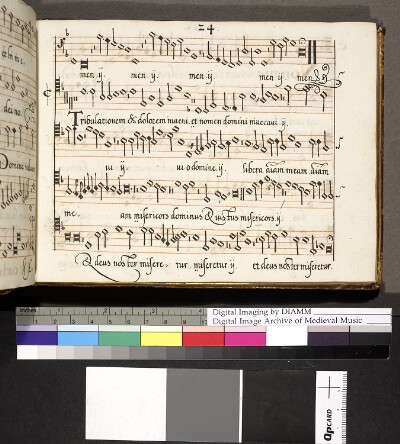 24
men ij. men ij. men ij. men ij. men
Tribulationem & dolorem inueni, et nomen domini inuocaui ij.
ui ij. ui o domine ij. libera aīam meam aīam
me. am misericors dominus & iustus misericors ij.
& deus noster misere- tur miseretur ij. et deus noster miseretur.
inches 1 2 3
Digital Imaging by DIAMM
Digital Image Archive of Medieval Music
QPCARD